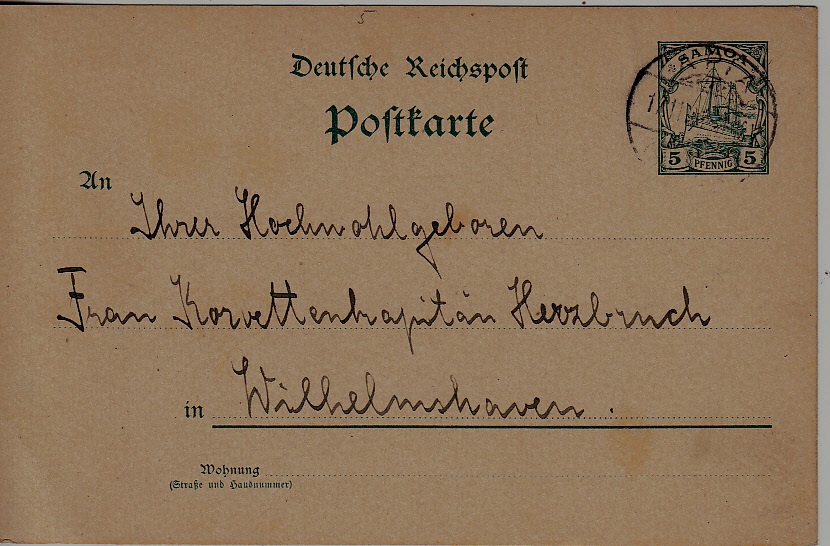 5
Deutsche Reichspost
Postkarte
SAMOA
5 PFENNIG 5
An
Ihrer Hochwohlgeboren
Frau Korvettenkapitän Herzbruch
in Wilhelmshaven.
Wohnung
(Straße und Hausnummer)